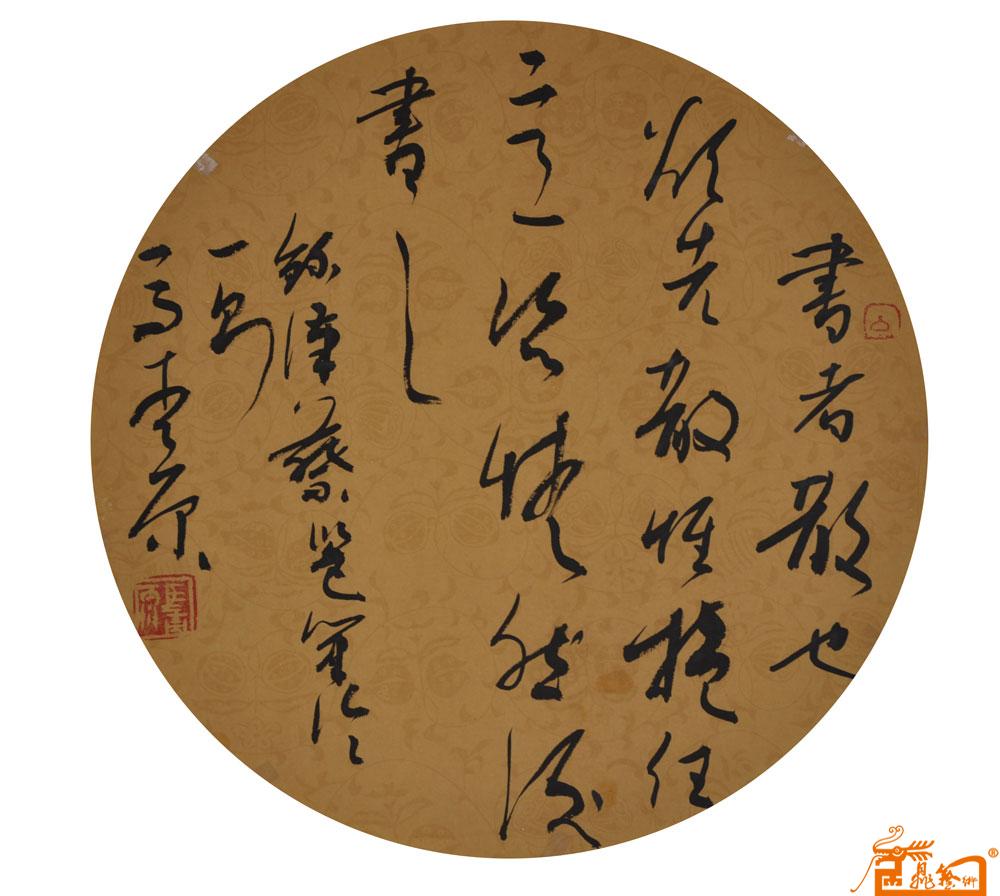 書者散也
欲先散懷抱任
意恣情然後
書之
錄漢蔡邕筆論
一則
馬